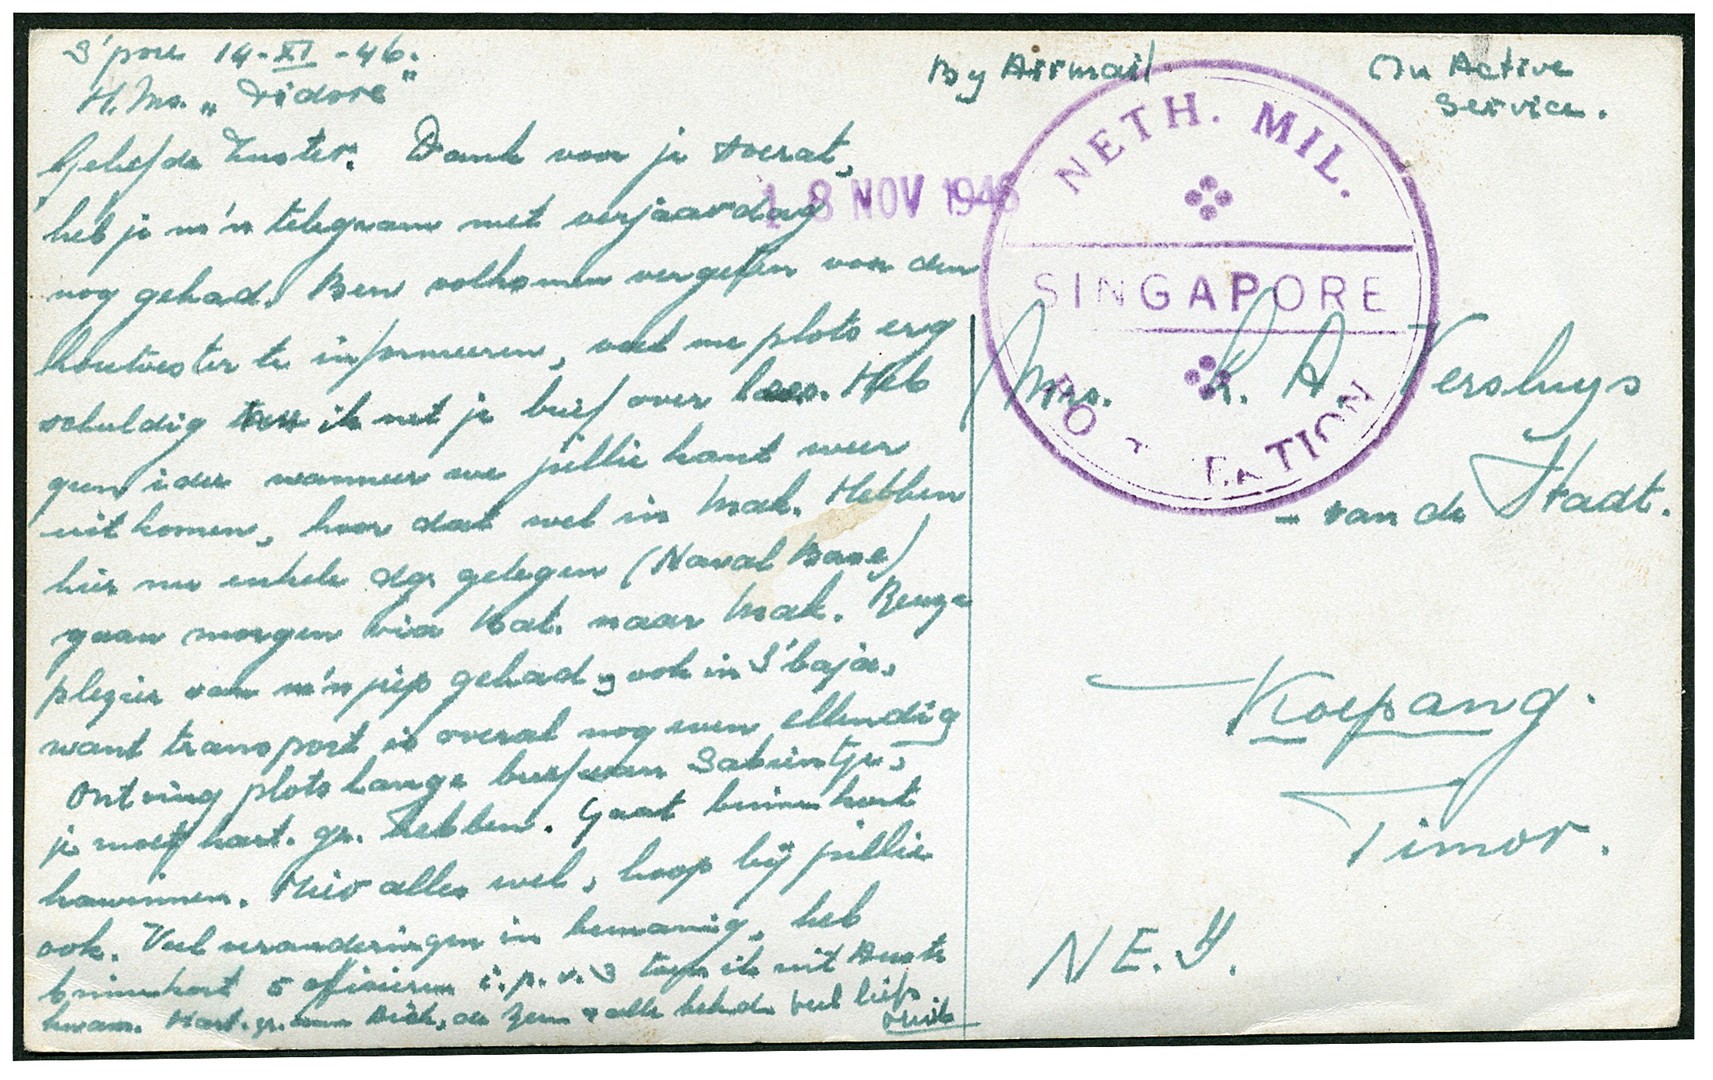 S'pore 14-XI-46.
H.Ms. „Tidore"
Geliefde Zuster. Dank voor je soerat,
heb je m'n telegram met verjaardag
nog gehad. Ben volkomen vergeten voor den
houtvester te informeeren, voel me plots erg
schuldig ik net je brief over lees. Heb
geen idee wanneer we jullie kant weer
uit komen, hoor dat wel in Mak. Hebben
hier nu enkele dgn gelegen (Naval Base)
gaan morgen via Bat. naar Mak. Reuze
plezier van m'n jeep gehad, ook in S'baja,
want transport is overal nog even ellendig
Ontving plots lange brief van
je moet hart. gr. hebben. Gaat binnenkort
kawinnen. Hier alles wel, hoop bij jullie
ook. Veel veranderingen in bemannig, heb
binnenkort 5 officieren i.p.v. 3 toen ik uit Austr.
kwam. Hart. gr. aan Dick, de Zen & alle veel liefs
By Airmail.
On Active
Service.
18 NOV 1946
NETH. MIL.
SINGAPORE
PO TATION
Mrs. A. Versluys
- van de Stadt.
Koepang.
Timor.
N E. I.